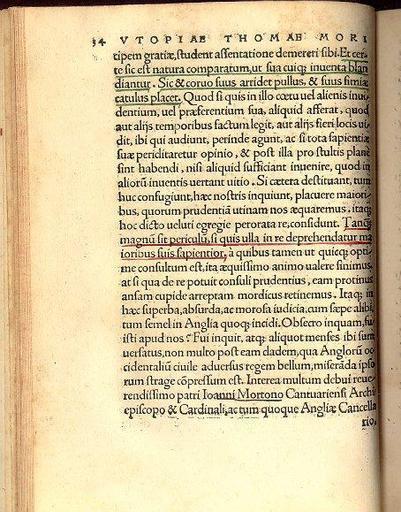 34 VTOPIAE THOMAE MORI
tipem gratiæ, student assentatione demereri sibi. Et cer
te sic est natura comparatum, ut sua cuiq; inuenta blan
diantur. Sic & coruo suus arridet pullus, & suus simiæ
catulus placet. Quod si quis in illo cœtu uel alienis inui
dentium, uel præferentium sua, aliquid afferat, quod
aut alijs temporibus factum legit, aut alijs fieri locis ui
dit, ibi qui audiunt, perinde agunt, ac si tota sapientiæ
suæ periditaretur opinio, & post illa pro stultis plane
sint habendi, nisi aliquid sufficiant inuenire, quod in
aliorū inuentis uertant uitio. Si cætera destituant, tum
huc confugiunt, hæc nostris inquiunt, placuere maiori
bus, quorum prudentiā utinam nos æquaremus. itaq;
hoc dicto ueluti egregie perorata re, considunt. Tanq̄
magnū sit periculū, si quis ulla in re deprehendatur ma
ioribus suis sapientior, à quibus tamen ut quicq; opti
me consultum est, ita æquissimo animo ualere sinimus.
at si qua de re potuit consuli prudentius, eam protinus
ansam cupide arreptam mordicus retinemus. Itaq; in
hæc superba, absurda, ac morosa iudicia, cum sæpe alibi,
tum semel in Anglia quoq; incidi. Obsecro inquam, fu
isti apud nos? Fui inquit, atq; aliquot menses ibi sum
uersatus, non multo post eam dadem, qua Anglorū oc
cidentaliū ciuile aduersus regem bellum, miserāda ipso
rum strage cōpressum est. Interea multum debui reue
rendissimo patri Ioanni Mortono Cantuariensi Archi
episcopo & Cardinali, ac tum quoque Angliæ Cancella
rio,